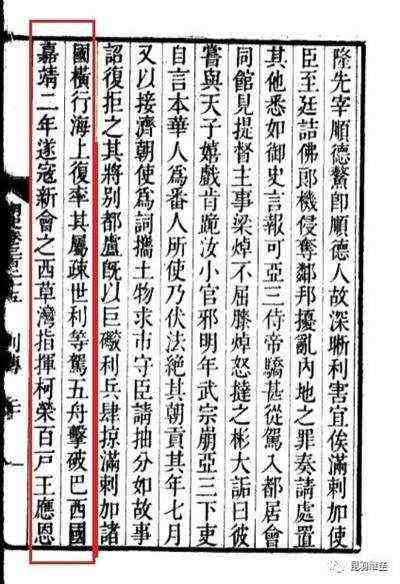 隆先宰順德鰲即順德人故深晰利害宜俟滿剌加使
臣至廷詰佛郎機侵奪鄰邦擾亂內地之罪奏請處置
其他悉如御史言報可亞三侍帝驕甚從駕入都居會
同館見提督主事梁焯不屈膝焯怒撻之彬大詬曰彼
嘗與天子嬉戲肯跪汝小官邪明年武宗崩亞三下吏
自言本華人爲番人所使乃伏法絕其朝貢其年七月
又以接濟朝使爲詞攜土物求市守臣請抽分如故事
詔復拒之其將別都盧既以巨礮利兵肆掠滿剌加諸
國橫行海上復率其屬疎世利等駕五舟擊破巴西國
嘉靖二年遂寇新會之西草灣指揮柯榮百戶王應恩
昆羽继圣